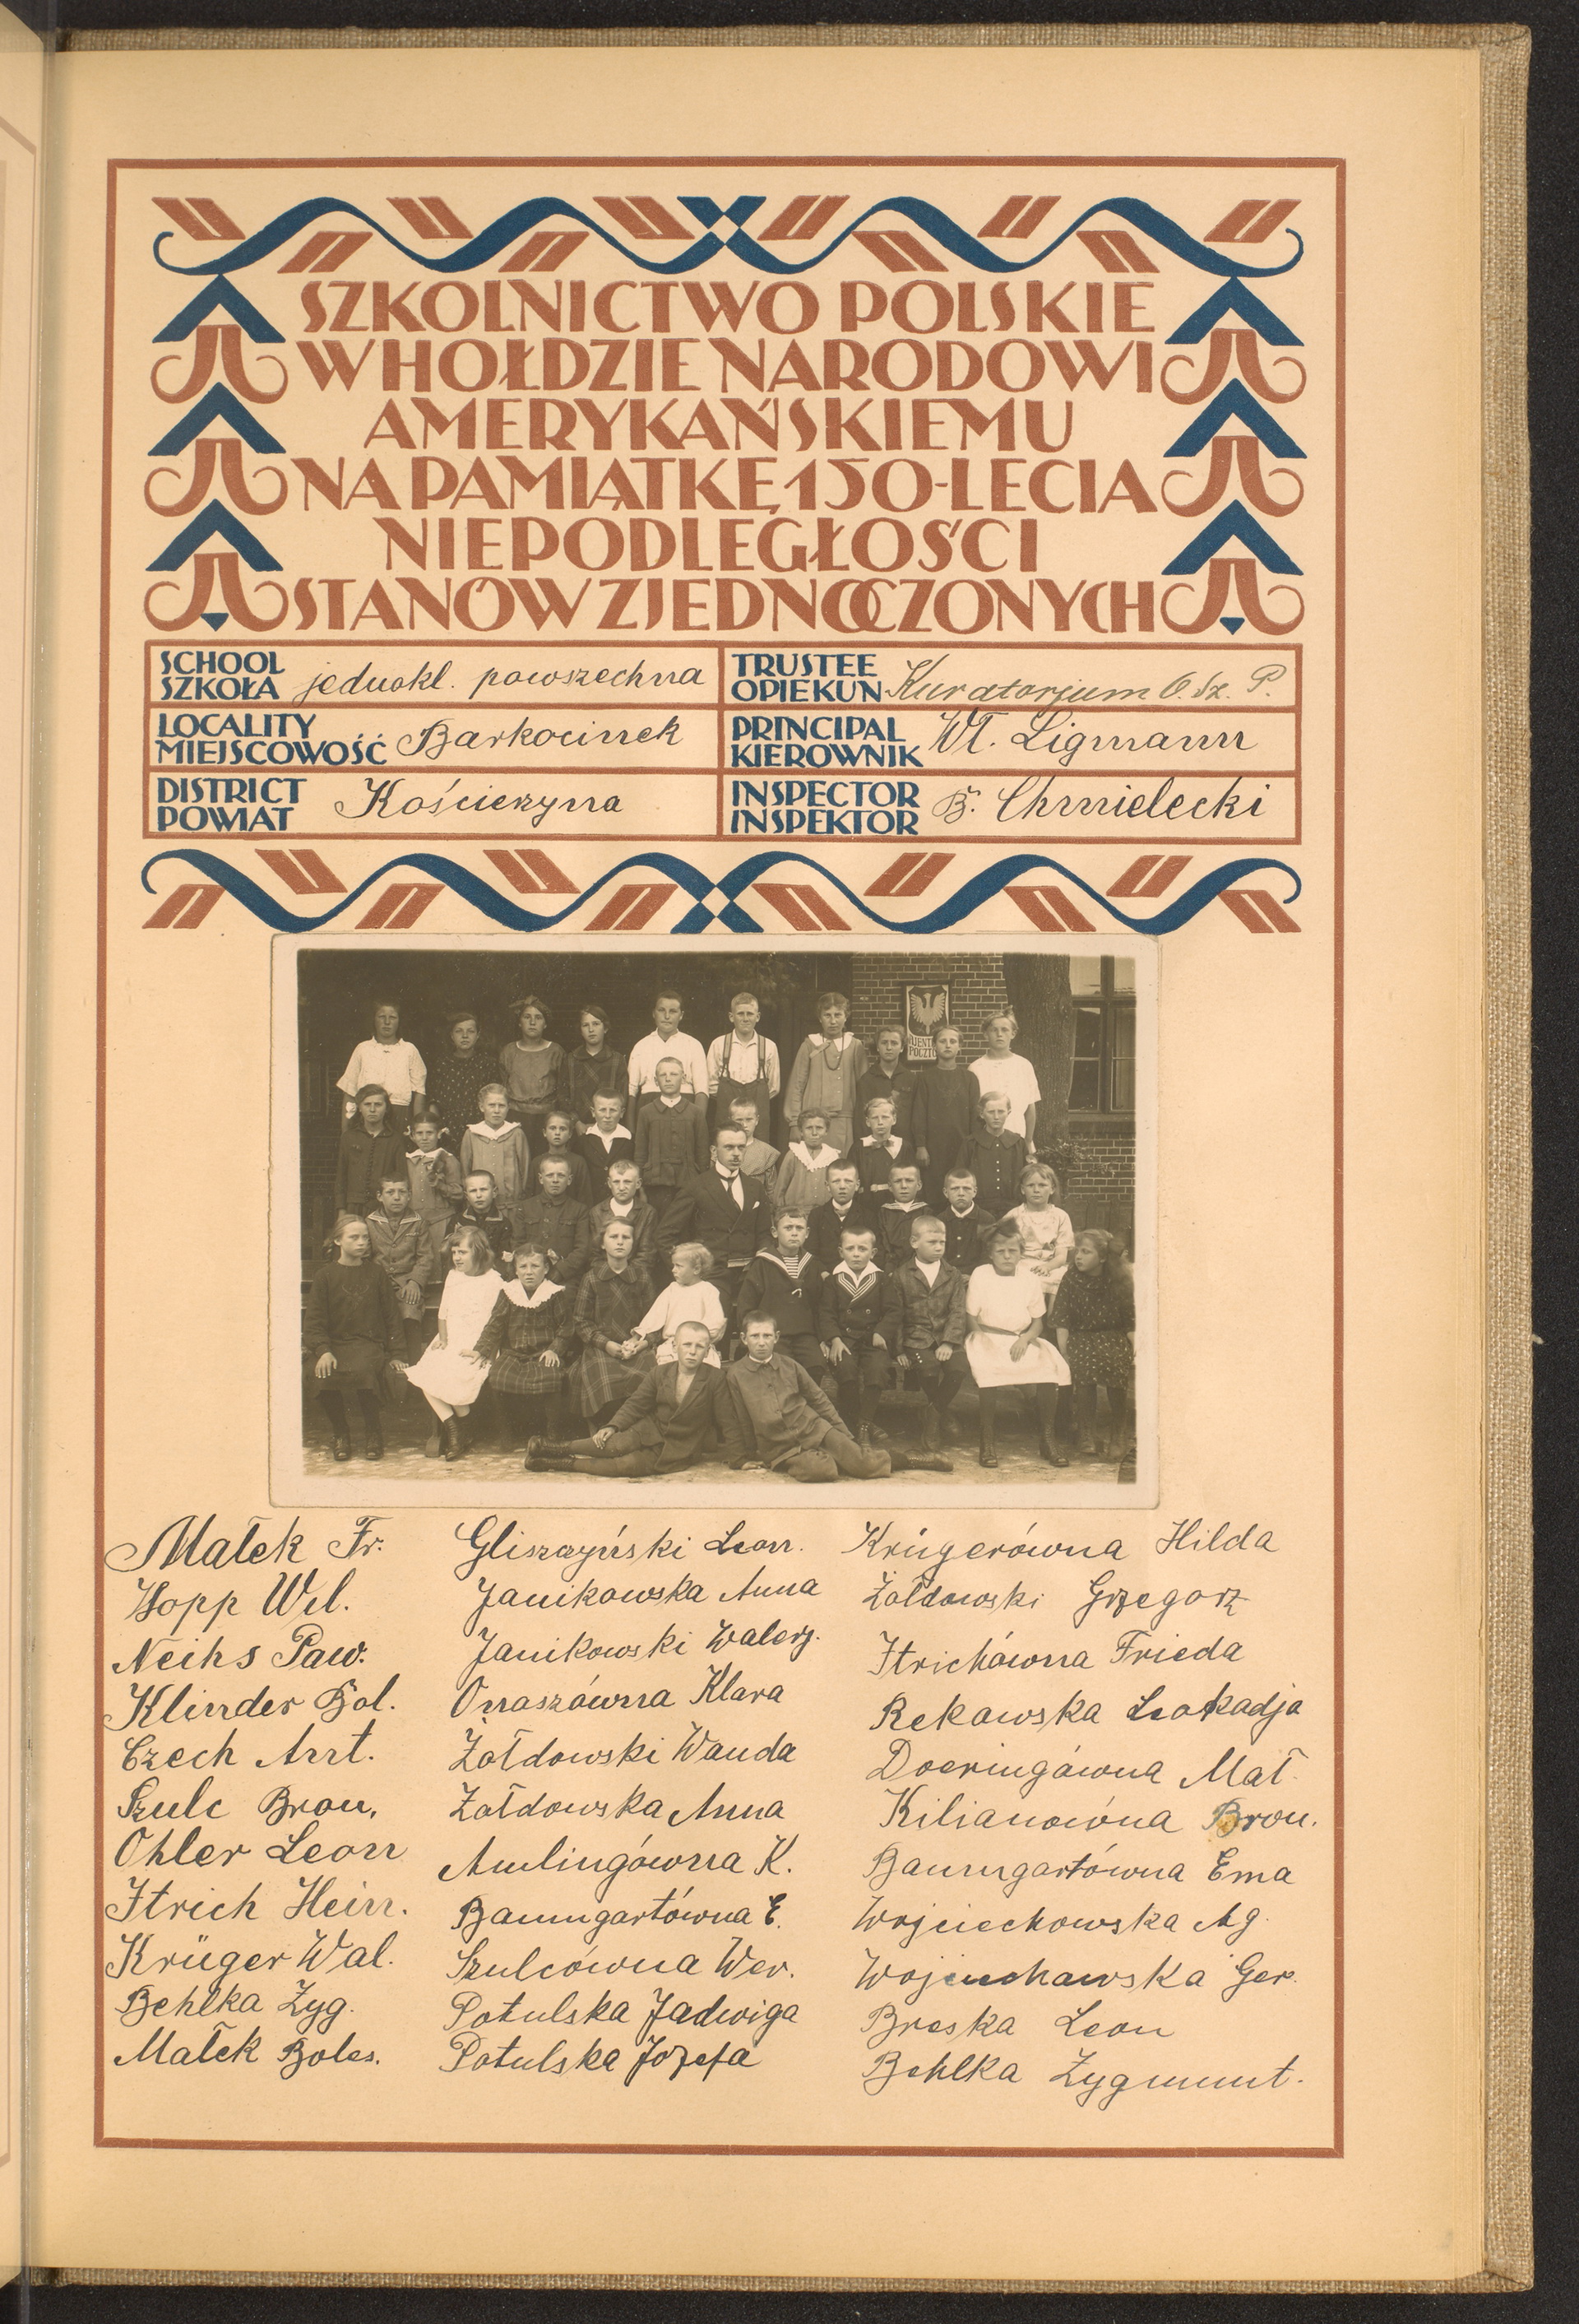 SZKOLNICTWO POLSKIE
W HOŁDZIE NARODOWI
AMERYKAŃSKIEMU
NA PAMIĄTKĘ 150-LECIA
NIEPODLEGŁOŚCI
STANÓW ZJEDNOCZONYCH
SCHOOL
SZKOŁA jednokl. powszechna
TRUSTEE
OPIEKUN Kuratorjum O. Sz. P.
LOCALITY
MIEJSCOWOŚĆ Barkocinek
PRINCIPAL
KIEROWNIK Wł. Ligmann
DISTRICT
POWIAT Kościerzyna
INSPECTOR
INSPEKTOR B. Chmielecki
Małek Fr.
Hopp Wil.
Neihs Paw.
Klinder Bol.
Czech Ant.
Szulc Bron.
Ohler Leon
Itrich Hein.
Krüger Wal.
Behlka Zyg.
Małek Boles.
Gliszczyński Leon.
Janikowska Anna
Janikowski Walerj.
Onaszówna Klara
Żołdowski Wanda
Żołdowska Anna
Amlingówna K.
Baumgartówna E.
Szulcówna Wer.
Potulska Jadwiga
Potulska Józefa
Krügerówna Hilda
Żołdowski Grzegorz
Itrichówna Frieda
Rekowska Leokadja
Doeringówna Mał.
Kilianowóna Bron.
Baumgartówna Ema
Wojciechowska Ag.
Wojciechowska Ger.
Breska Leon
Behlka Zygmunt.